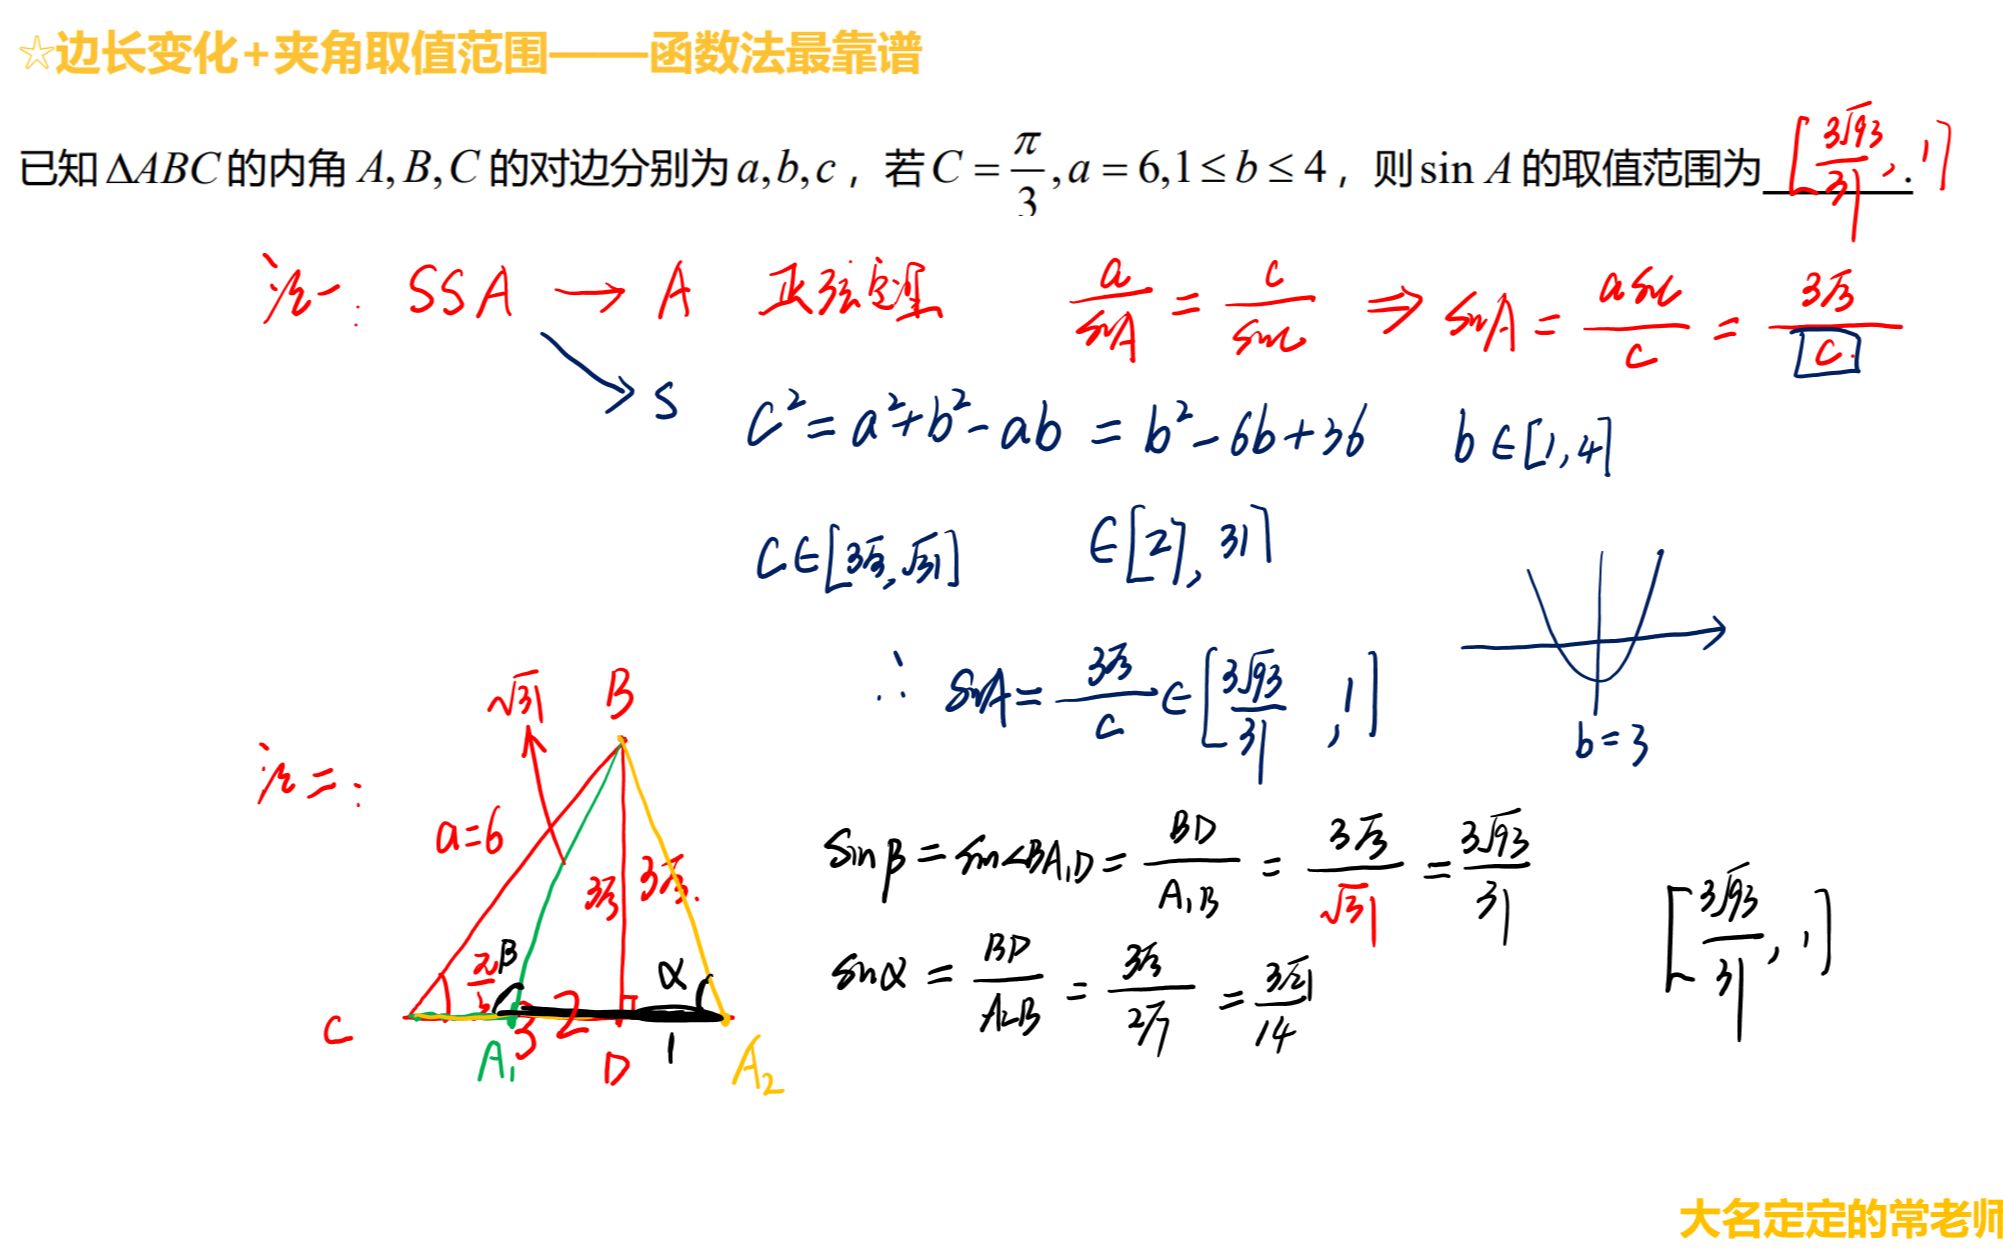 ☆边长变化+夹角取值范围——函数法最靠谱
已知ΔABC的内角A,B,C的对边分别为a,b,c，若C=π/3,a=6,1≤b≤4，则sin A的取值范围为 [3√93/31, 1].
法一: SSA → A 正弦定理 a/sinA = c/sinC ⇒ sinA = asinC/c = 3√3/c
→ S c²=a²+b²-ab = b²-6b+36 b∈[1,4]
c∈[3√3,√31] ∈[27, 31]
∴ sinA = 3√3/c ∈ [3√93/31, 1]
b=3
法二:
√31 B
a=6 3√3 3√3
π/3 β α
C A₁ 3 2 D 1 A₂
sinβ = sin∠BA₁D = BD/A₁B = 3√3/√31 = 3√93/31
sinα = BD/A₂B = 3√3/2√7 = 3√21/14
[3√93/31, 1]
大名定定的常老师